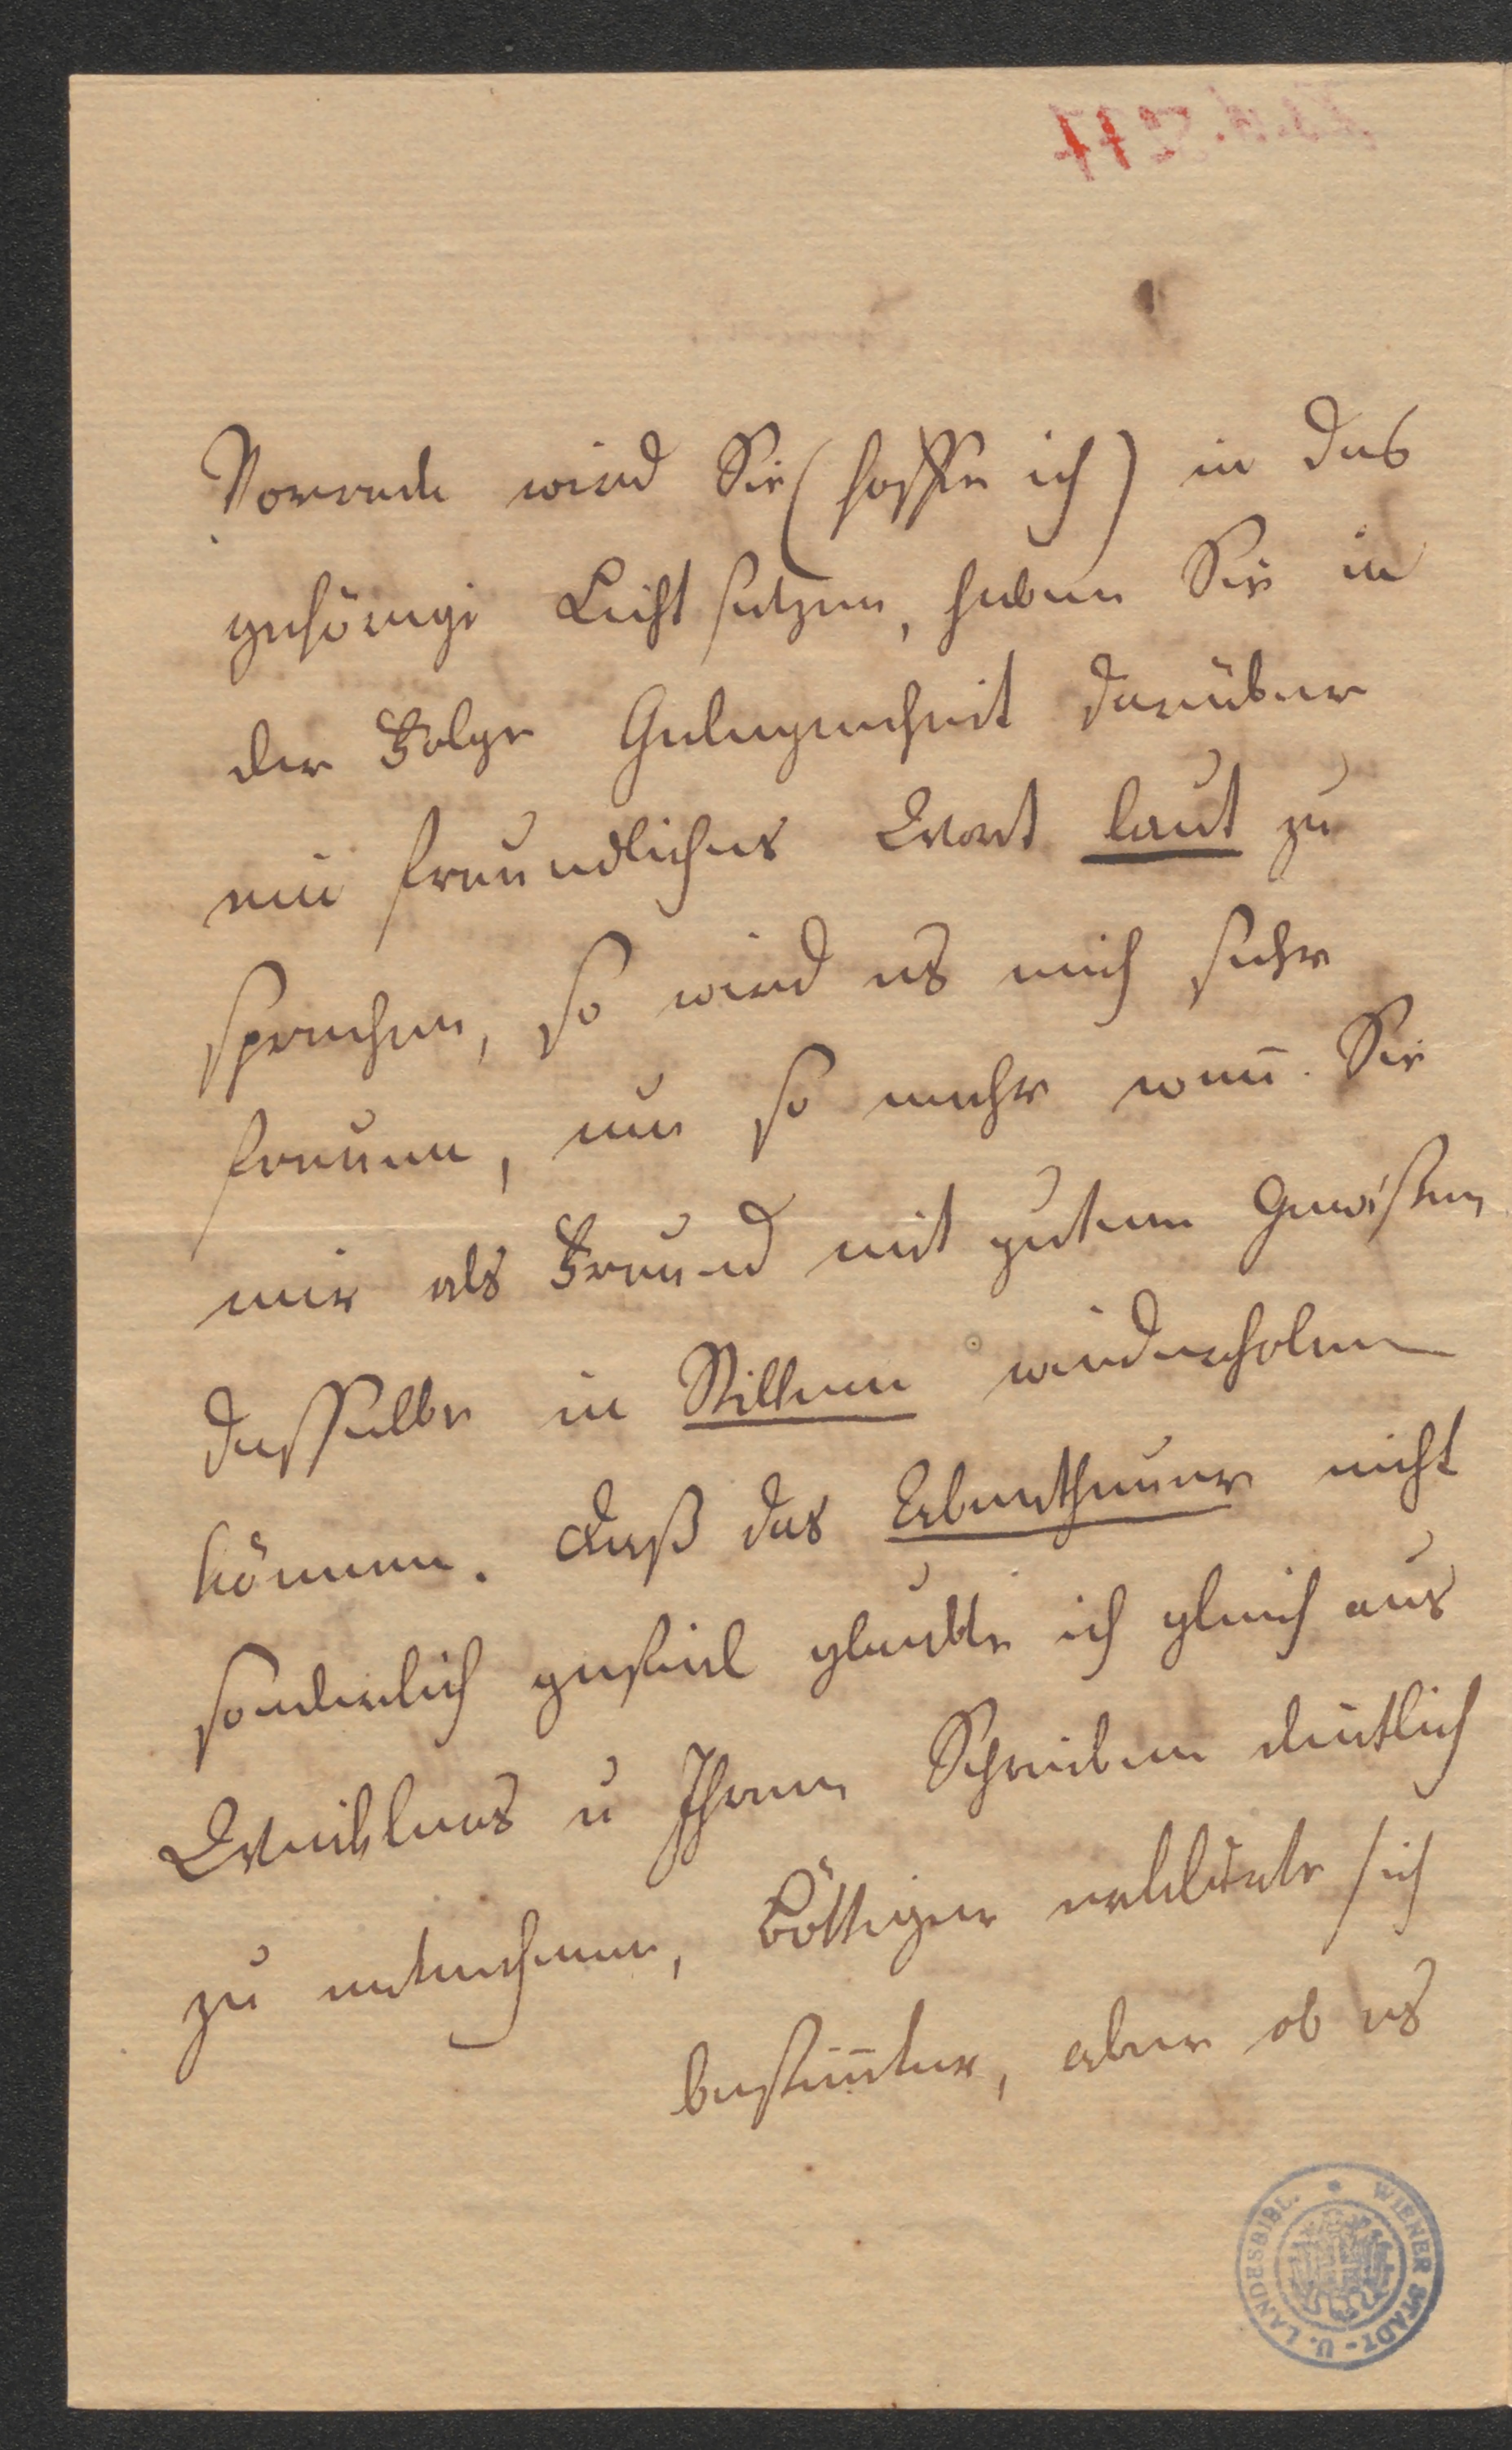 Vorrede wird Sie (hoffe ich) in das
gehörige Licht setzen, haben Sie in
der Folge Gelegenheit darüber
ein freundliches Wort laut zu
sprechen, so wird es mich sehr
freuen, um so mehr wenn̄ Sie
mir als Freund mit gutem Gewißen
dasselbe in Stillen wiederholen
können. Daß das Ebentheuer nicht
sonderlich gefiel glaubte ich gleich aus
u Ihrem Schreiben deutlich
zu entnehmen, Böttiger erklärte sich
bestim̄ter, aber ob es
WIENER STADT- U. LANDESBIBL.